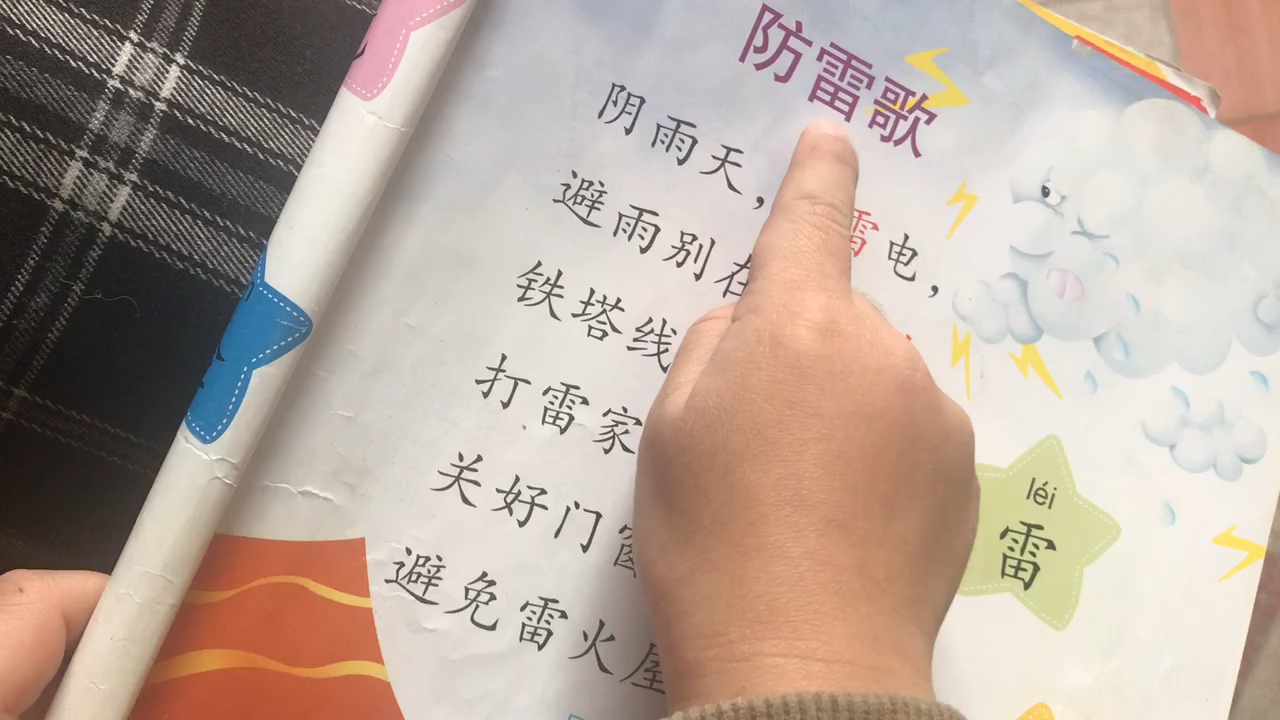 防雷歌
阴雨天，雷电，
避雨别在
铁塔线
打雷家
关好门窗
避免雷火屋
léi
雷